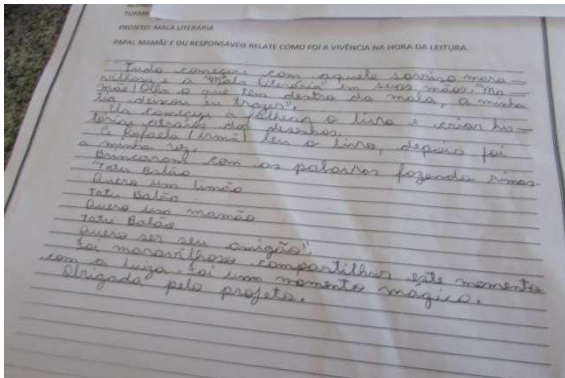 PROJETO: MALA LITERÁRIA
PAPAI, MAMÃE E OU RESPONSÁVEL RELATE COMO FOI A VIVÊNCIA NA HORA DA LEITURA.
Tudo começou com aquele sorriso mara-
vilhoso e a "Mala Literária" em suas mãos. "Ma-
mãe! Olha o que tem dentro da mala, a minha
tia deixou eu trazer".
Ela começou a folhear o livro e criar his-
tórias através dos desenhos.
A Rafaela (irmã) leu o livro, depois foi
a minha vez.
Brincaram com as palavras fazendo rimas.
Tatu Balão
Quero um limão
Tatu Balão
Quero uma mamão
Tatu Balão
Quero ser seu amigão".
Foi maravilhoso compartilhar este momento
com a Luiza. Foi um momento mágico.
Obrigada pelo projeto.